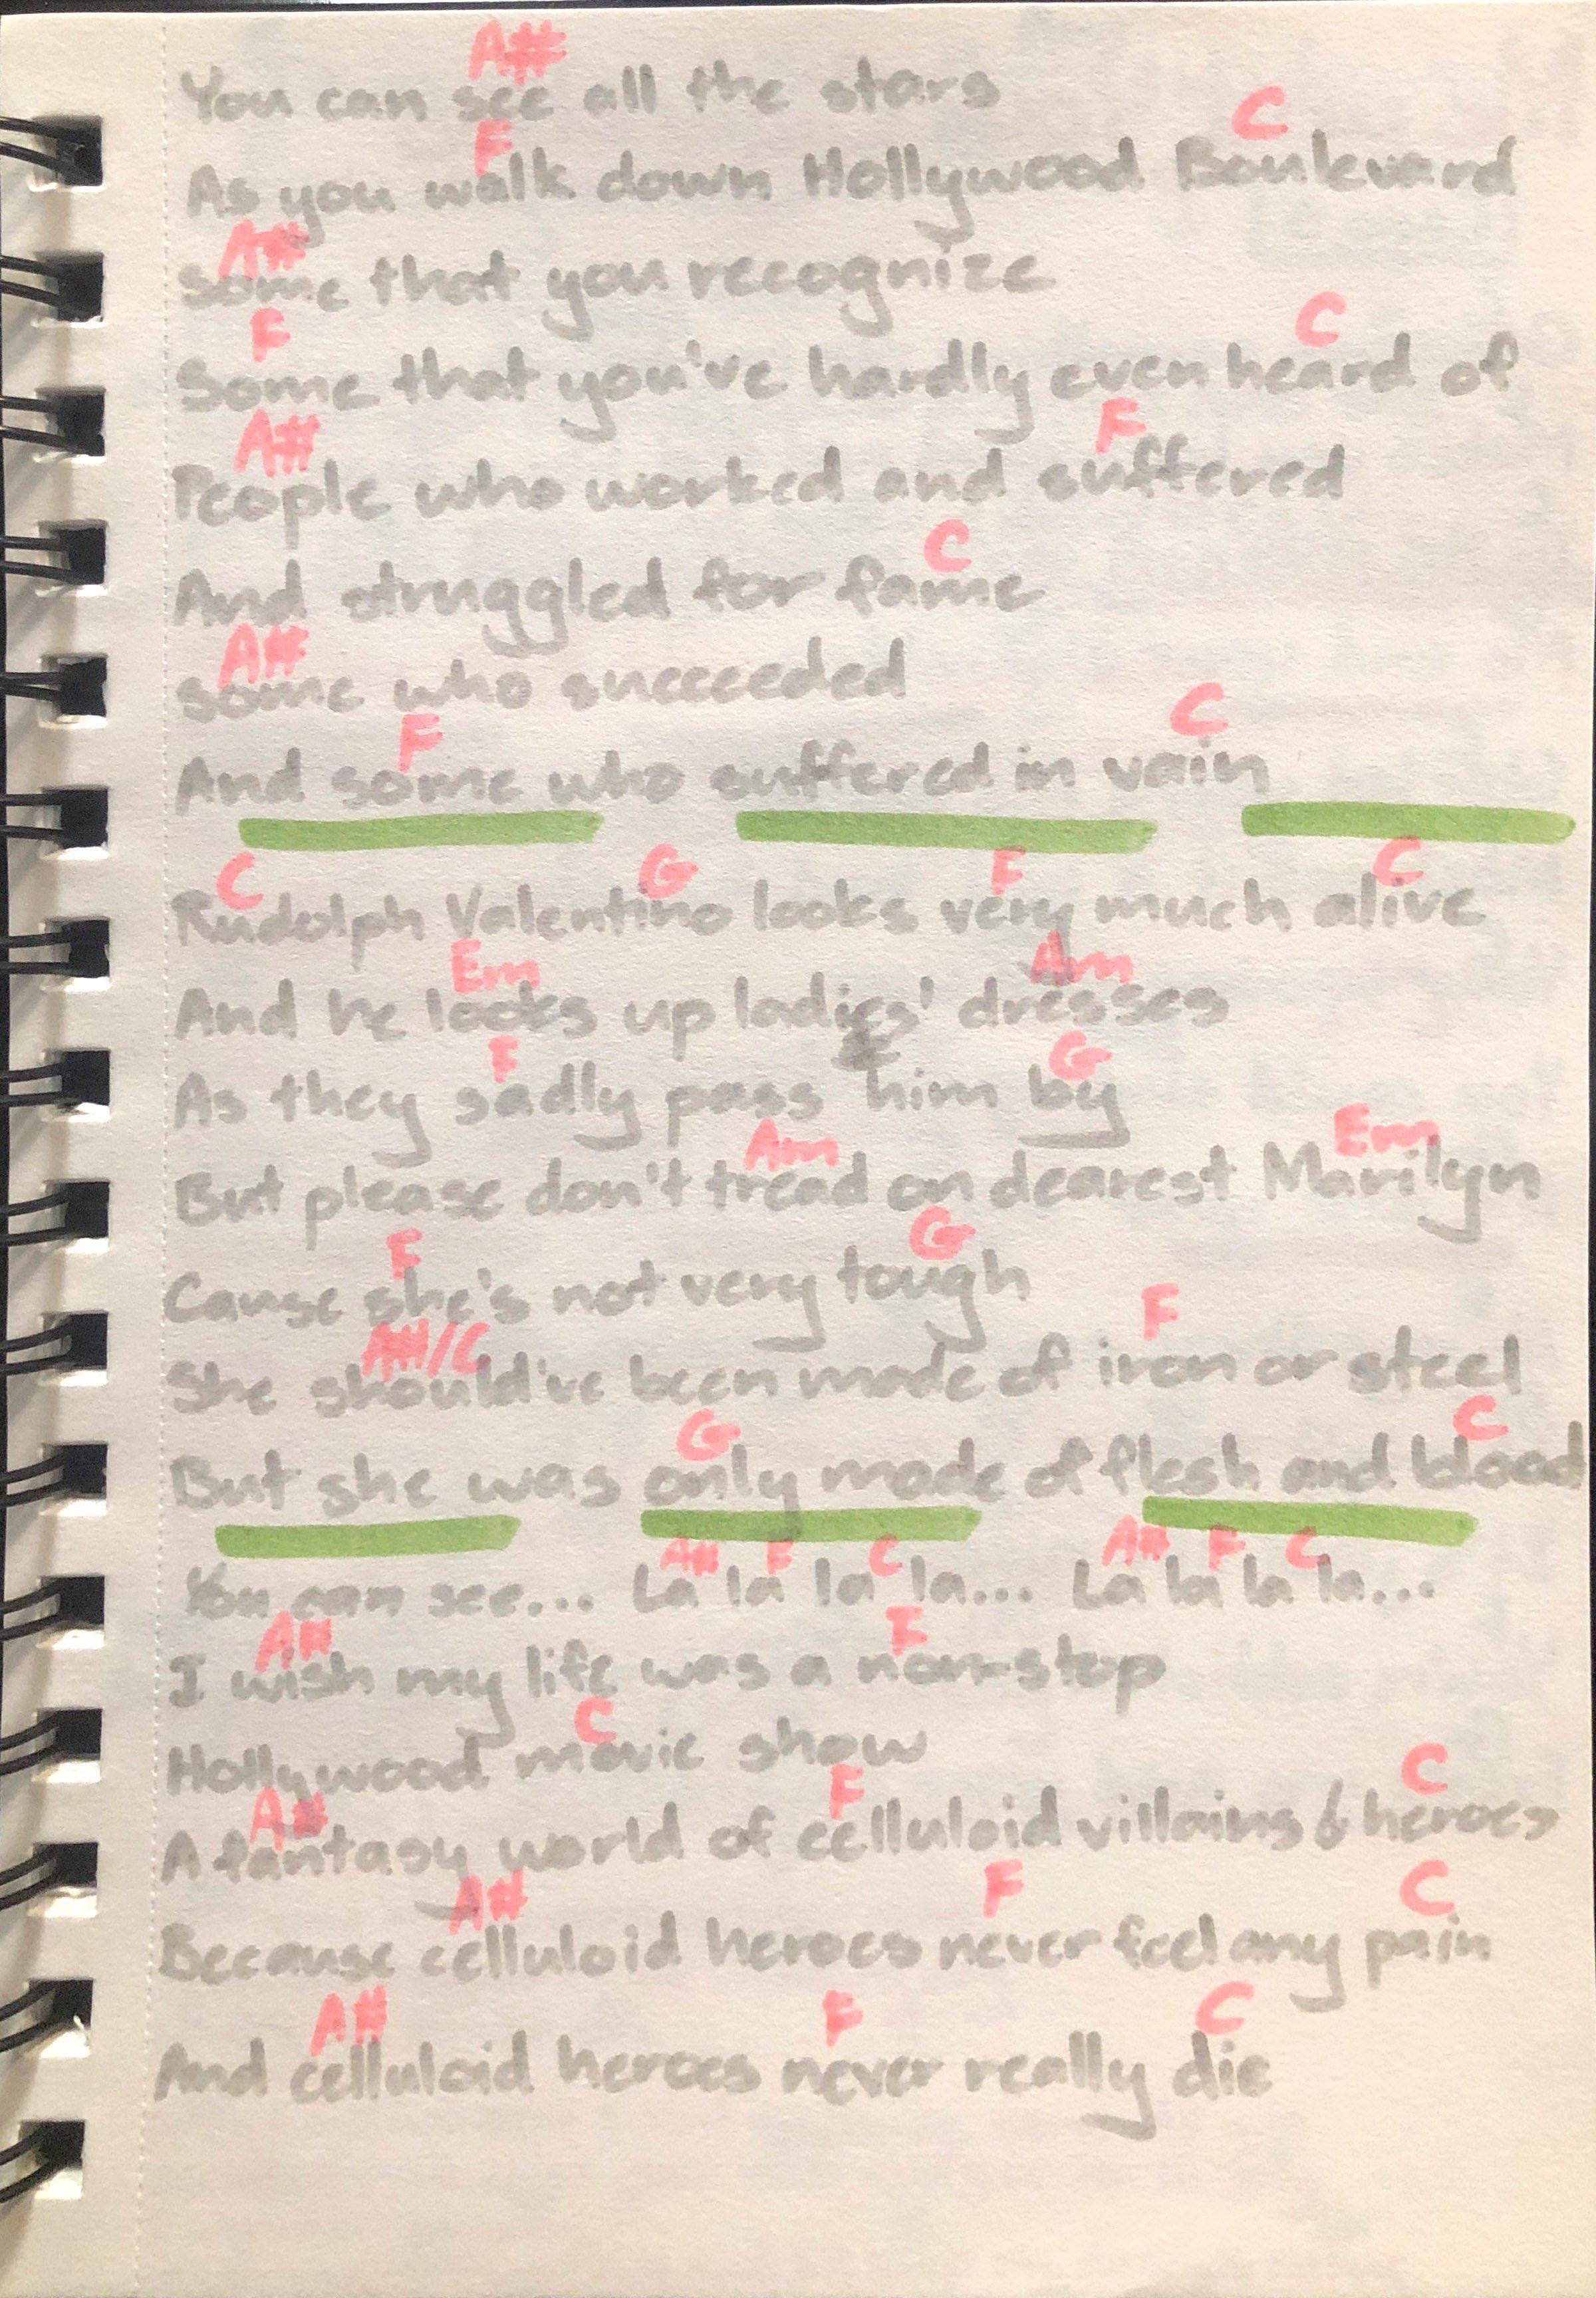 A#
You can see all the stars
F C
As you walk down Hollywood Boulevard
A#
Some that you recognize
F C
Some that you've hardly even heard of
A# F
People who worked and suffered
C
And struggled for fame
A#
Some who succeeded
F C
And some who suffered in vain
C G F C
Rudolph Valentino looks very much alive
Em Am
And he looks up ladies' dresses
F G
As they sadly pass him by
Am Em
But please don't tread on dearest Marilyn
F G
Cause she's not very tough
A#/C F
She should've been made of iron or steel
G C
But she was only made of flesh and blood
A# F C A# F C
You can see... La la la la... La la la la...
A# F
I wish my life was a non-stop
C
Hollywood movie show
A# F C
A fantasy world of celluloid villains & heroes
A# F C
Because celluloid heroes never feel any pain
A# F C
And celluloid heroes never really die